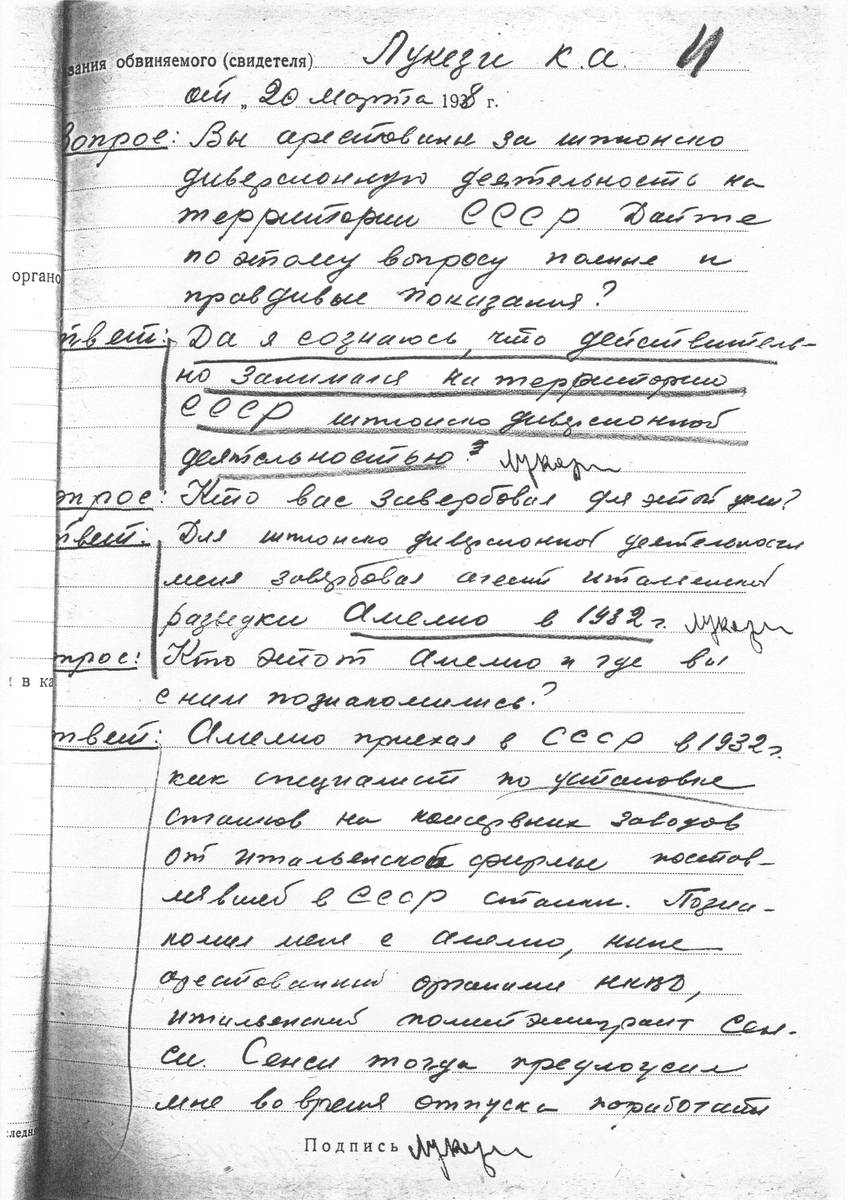 вания обвиняемого (свидетеля) Лукези К.А. 11
от „20 марта 1938 г.
Вопрос: Вы арестованы за шпионско
диверсионную деятельность на
территории СССР. Дайте
по этому вопросу полные и
органо
правдивые показания?
твет: Да я сознаюсь, что действитель-
но занимался на территории
СССР шпионско диверсионной
деятельностью Лукези
прос: Кто вас завербовал для этой цели?
твет: Для шпионско диверсионной деятельности
меня завербовал агент итальянской
разведки Амелио в 1932 г. Лукези
прос: Кто этот Амелио и где вы
и в ка
с ним познакомились?
твет: Амелио приехал в СССР в 1932 г.
как специалист по установке
станков на консервных заводов
от итальянской фирмы постав-
лявшей в СССР станки. Позна-
комил меня с Амелио, ныне
арестованный органами НКВД,
итальянский политэмигрант Сен-
си. Сенси тогда предложил
мне во время отпуска поработать
следня
Подпись Лукези